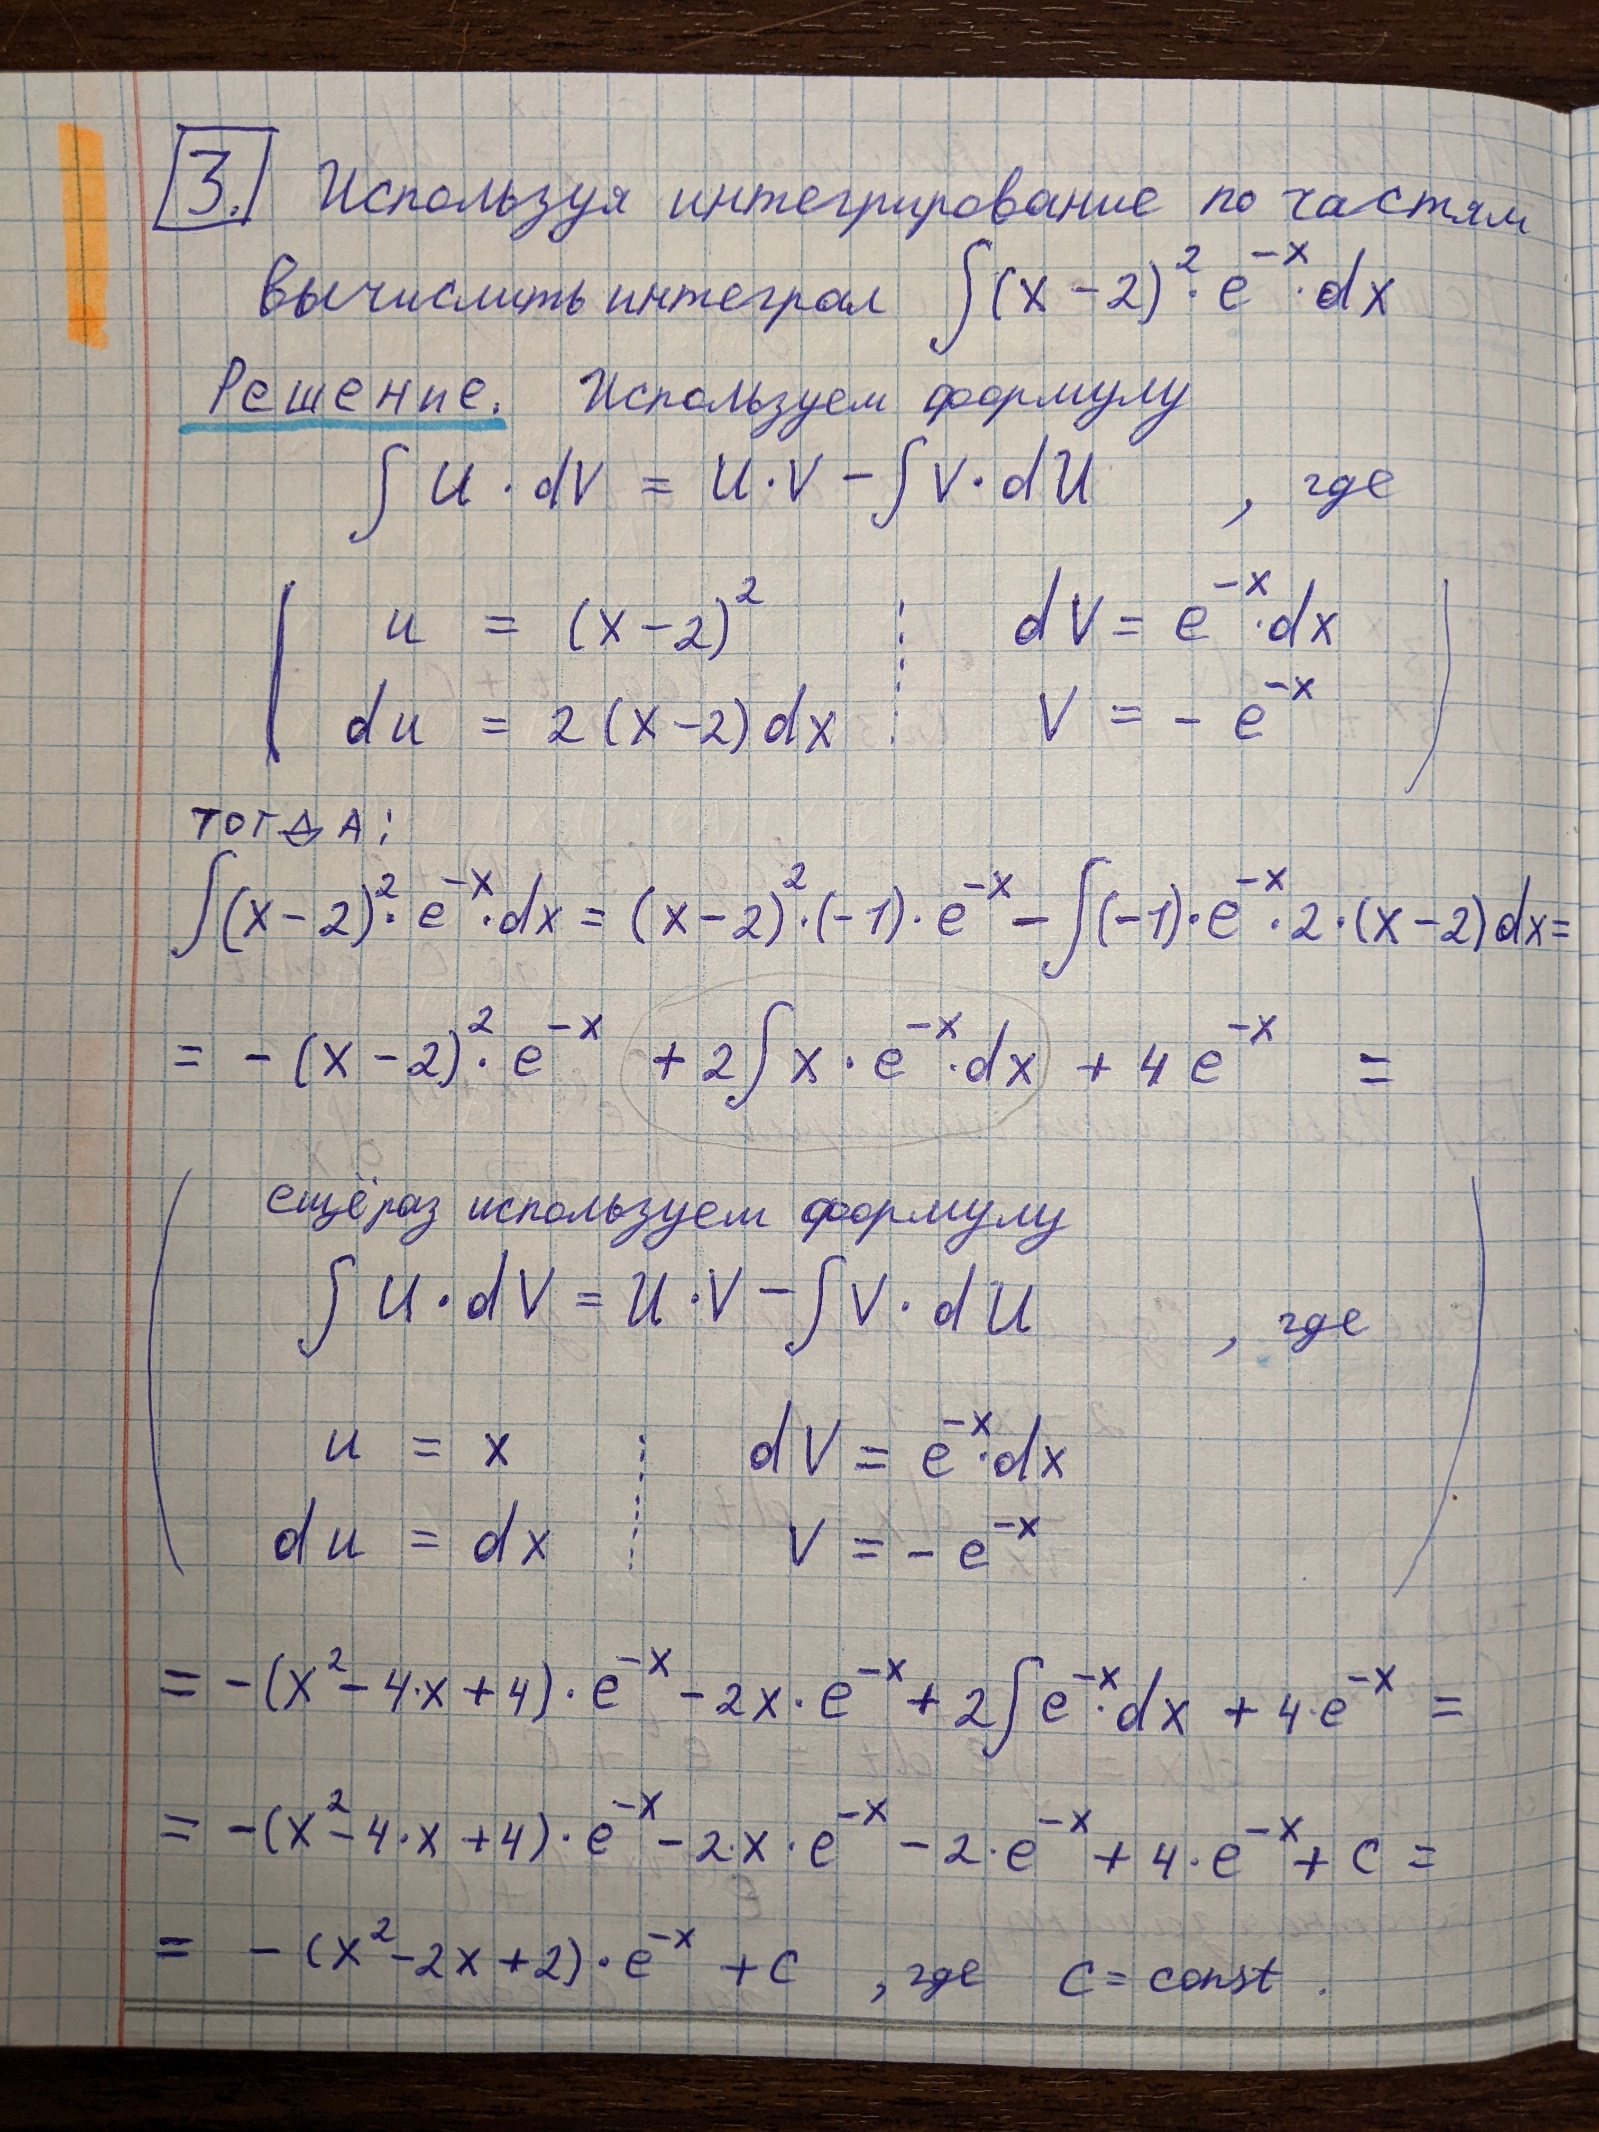 3. Используя интегрирование по частям
вычислить интеграл ∫(x-2)²·e^{-x}·dx
Решение. Используем формулу
∫U·dV = U·V - ∫V·dU , где
u = (x-2)² dV = e^{-x}·dx
du = 2(x-2)dx V = -e^{-x}
тогда:
∫(x-2)²·e^{-x}·dx = (x-2)²·(-1)·e^{-x} - ∫(-1)·e^{-x}·2·(x-2)dx =
= -(x-2)²·e^{-x} + 2∫x·e^{-x}·dx + 4e^{-x} =
ещё раз используем формулу
∫U·dV = U·V - ∫V·dU , где
u = x dV = e^{-x}·dx
du = dx V = -e^{-x}
= -(x²-4·x+4)·e^{-x} - 2x·e^{-x} + 2∫e^{-x}·dx + 4·e^{-x} =
= -(x²-4·x+4)·e^{-x} - 2·x·e^{-x} - 2·e^{-x} + 4·e^{-x} + C =
= -(x²-2x+2)·e^{-x} + C , где C = const.